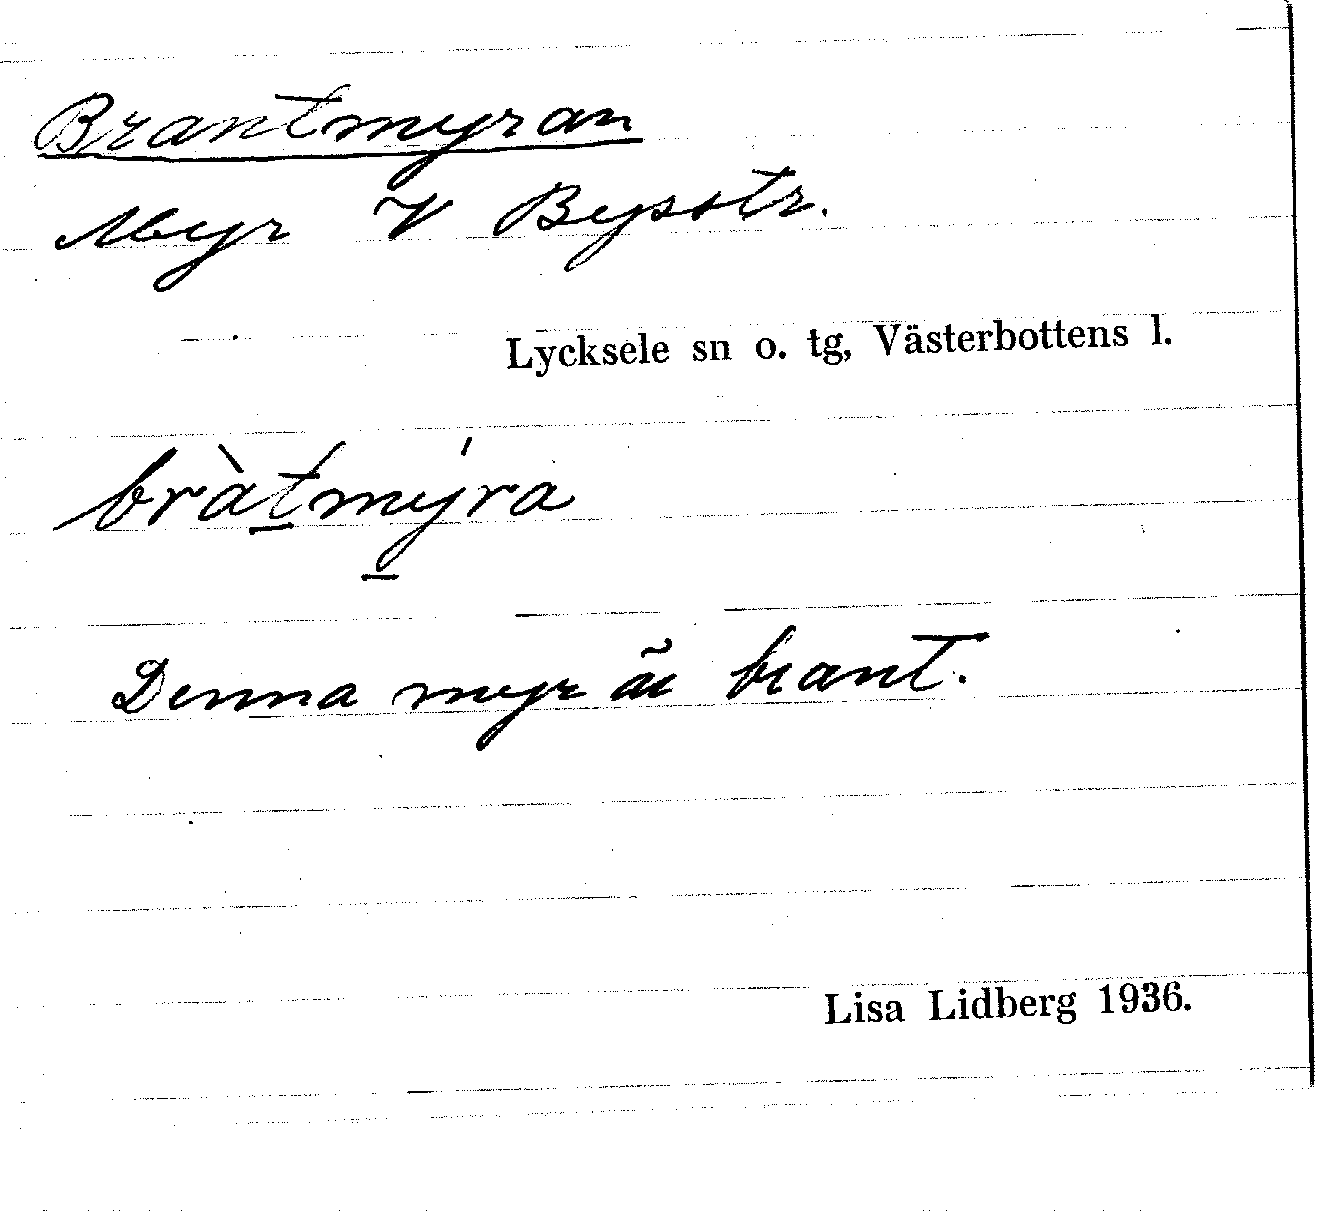 Brantmyran
Myr V Bysstr.
Lycksele sn o. tg, Västerbottens l.
bràt̠mý̠ra
Denna myr är brant.
Lisa Lidberg 1936.